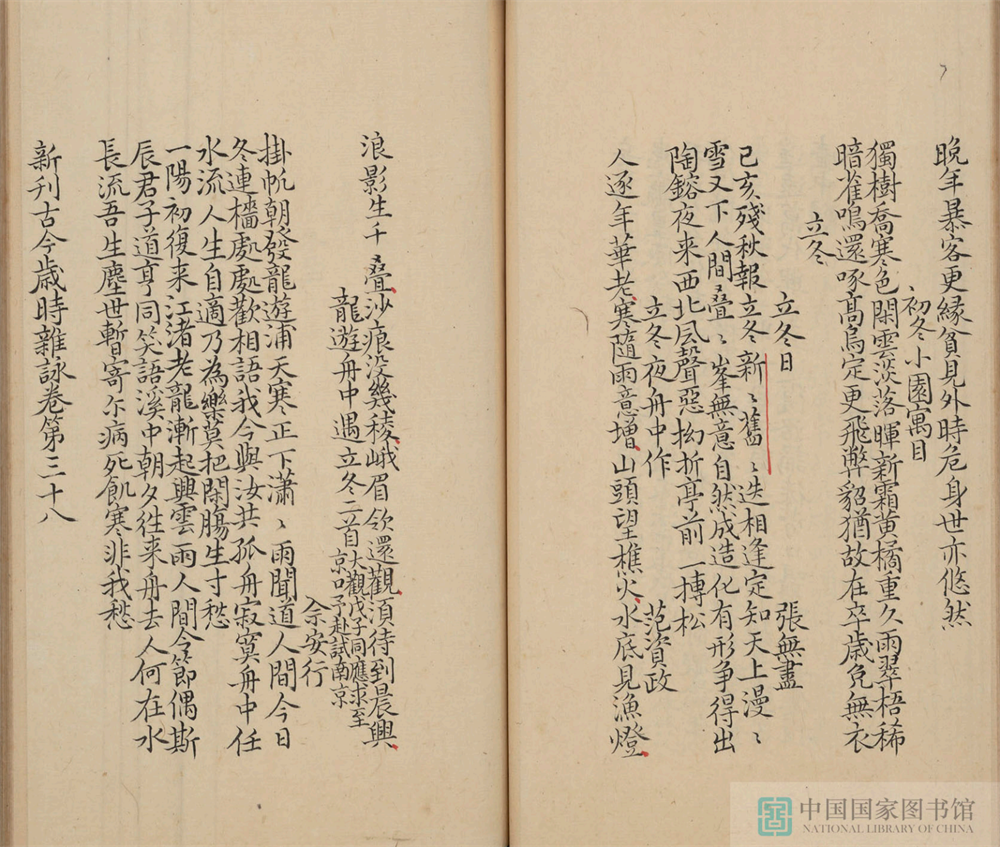 晚年暴客更緣貧見外時危身世亦悠然
初冬小園寓目
獨樹喬寒色閑雲淡落暉新霜黃橘重久雨翠梧稀
暗雀鳴還啄高烏定更飛弊貂猶故在卒歲免無衣
立冬
立冬日 張無盡
己亥殘秋報立冬新〻舊〻迭相逢定知天上漫〻
雪又下人間疊〻峯無意自然成造化有形争得出
陶鎔夜来西北風聲惡拗折亭前一搏松
立冬夜舟中作 范資政
人逐年華老寒隨雨意增山頭望樵火水底見漁燈
浪影生千疊沙痕没幾稜峨眉欲還觀湏待到晨興
龍遊舟中遇立冬二首大觀戊子同應求至京口予赴試南京
佘安行
掛帆朝發龍遊浦天寒正下瀟〻雨聞道人間今日
冬連檣處處歡相語我今與汝共孤舟寂寞舟中任
水流人生自適乃為樂莫把閑膓生寸愁
一陽初復来江渚老龍漸起興雲雨人間令節偶斯
辰君子道亨同笑語溪中朝夕往来舟去人何在水
長流吾生塵世暫寄尓病死飢寒非我愁
新刊古今歲時雜詠卷第三十八
中国国家图书馆
NATIONAL LIBRARY OF CHINA